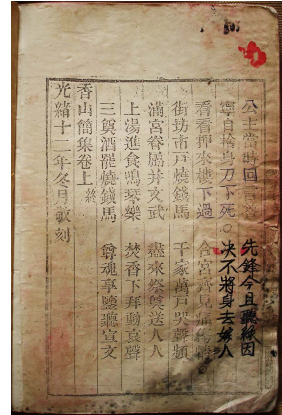 公主當時回 先鋒今且聽緣因
寧自捨身刀下死。決不將身去嫁人
看看押來樓下過 合宮齊見痛
街坊市戶燒錢馬 千家萬戶哭聲頻
滿宮眷屬并文武 盡來祭奠送人人
上湯進食鳴琴樂 焚香下拜動哀聲
三奠酒罷燒錢馬 尊魂享 聽宣文
香山簡集卷上 終
光緒十二年冬月敬刻